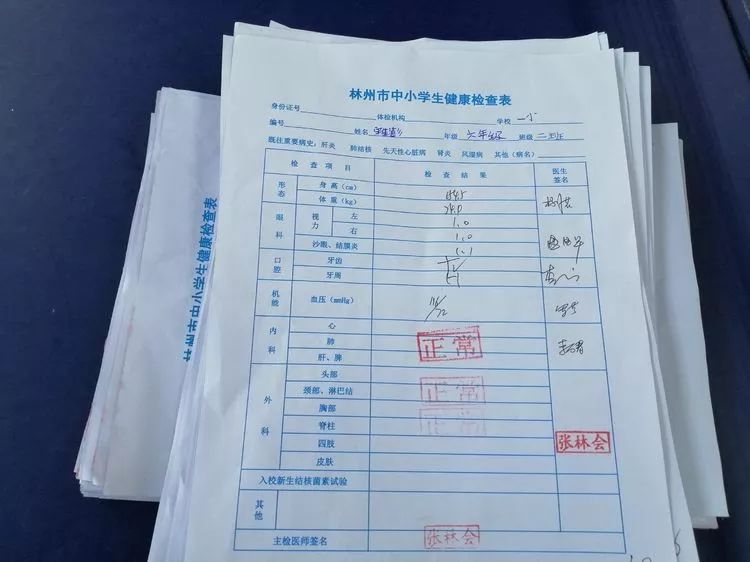 林州市中小学生健康检查表
身份证号 体检机构 学校 一小
编号 姓名 年级 六年级 班级 二班
既往重要病史：肝炎 肺结核 先天性心脏病 肾炎 风湿病 其他（病名）
检查项目 检查结果 医生签名
形态 身高（cm）
体重（kg）
眼科 视力 左 1.0
右 1.0
沙眼、结膜炎 (-)
口腔 牙齿
牙周 (-)
机能 血压（mmHg）
内科 心
肺 正常
肝、脾
外科 头部
颈部、淋巴结 正常
胸部
脊柱 正常
四肢 张林会
皮肤
入校新生结核菌素试验
其他
主检医师签名 张林会
林州市中小学生健康检查表